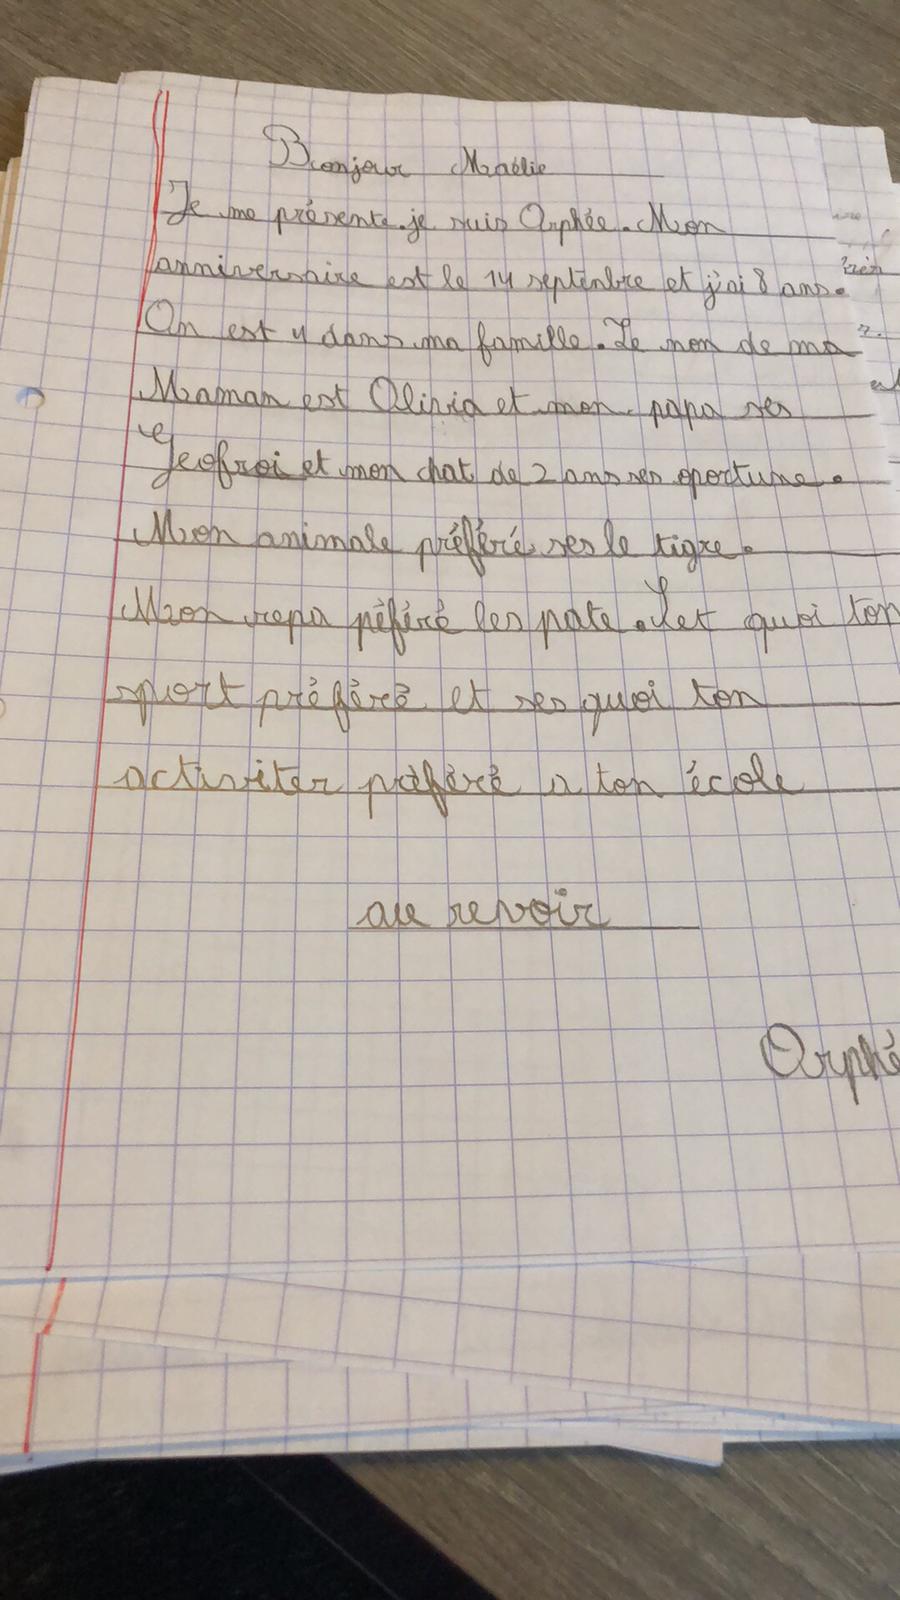 Bonjour Maélie
Je me présente. je suis Orphée. Mon
anniversaire est le 14 septenbre et j'ai 8 ans.
On est 4 dans ma famille. Le non de ma
Maman est Olivia et mon papa ses
Geofroi et mon chat de 2 ans ses oportune.
Mon animale préféré ses le tigre.
Mon repa péféré les pate. Set quoi ton
sport préféré et ses quoi ton
activiter préféré a ton école
au revoir
Orphé